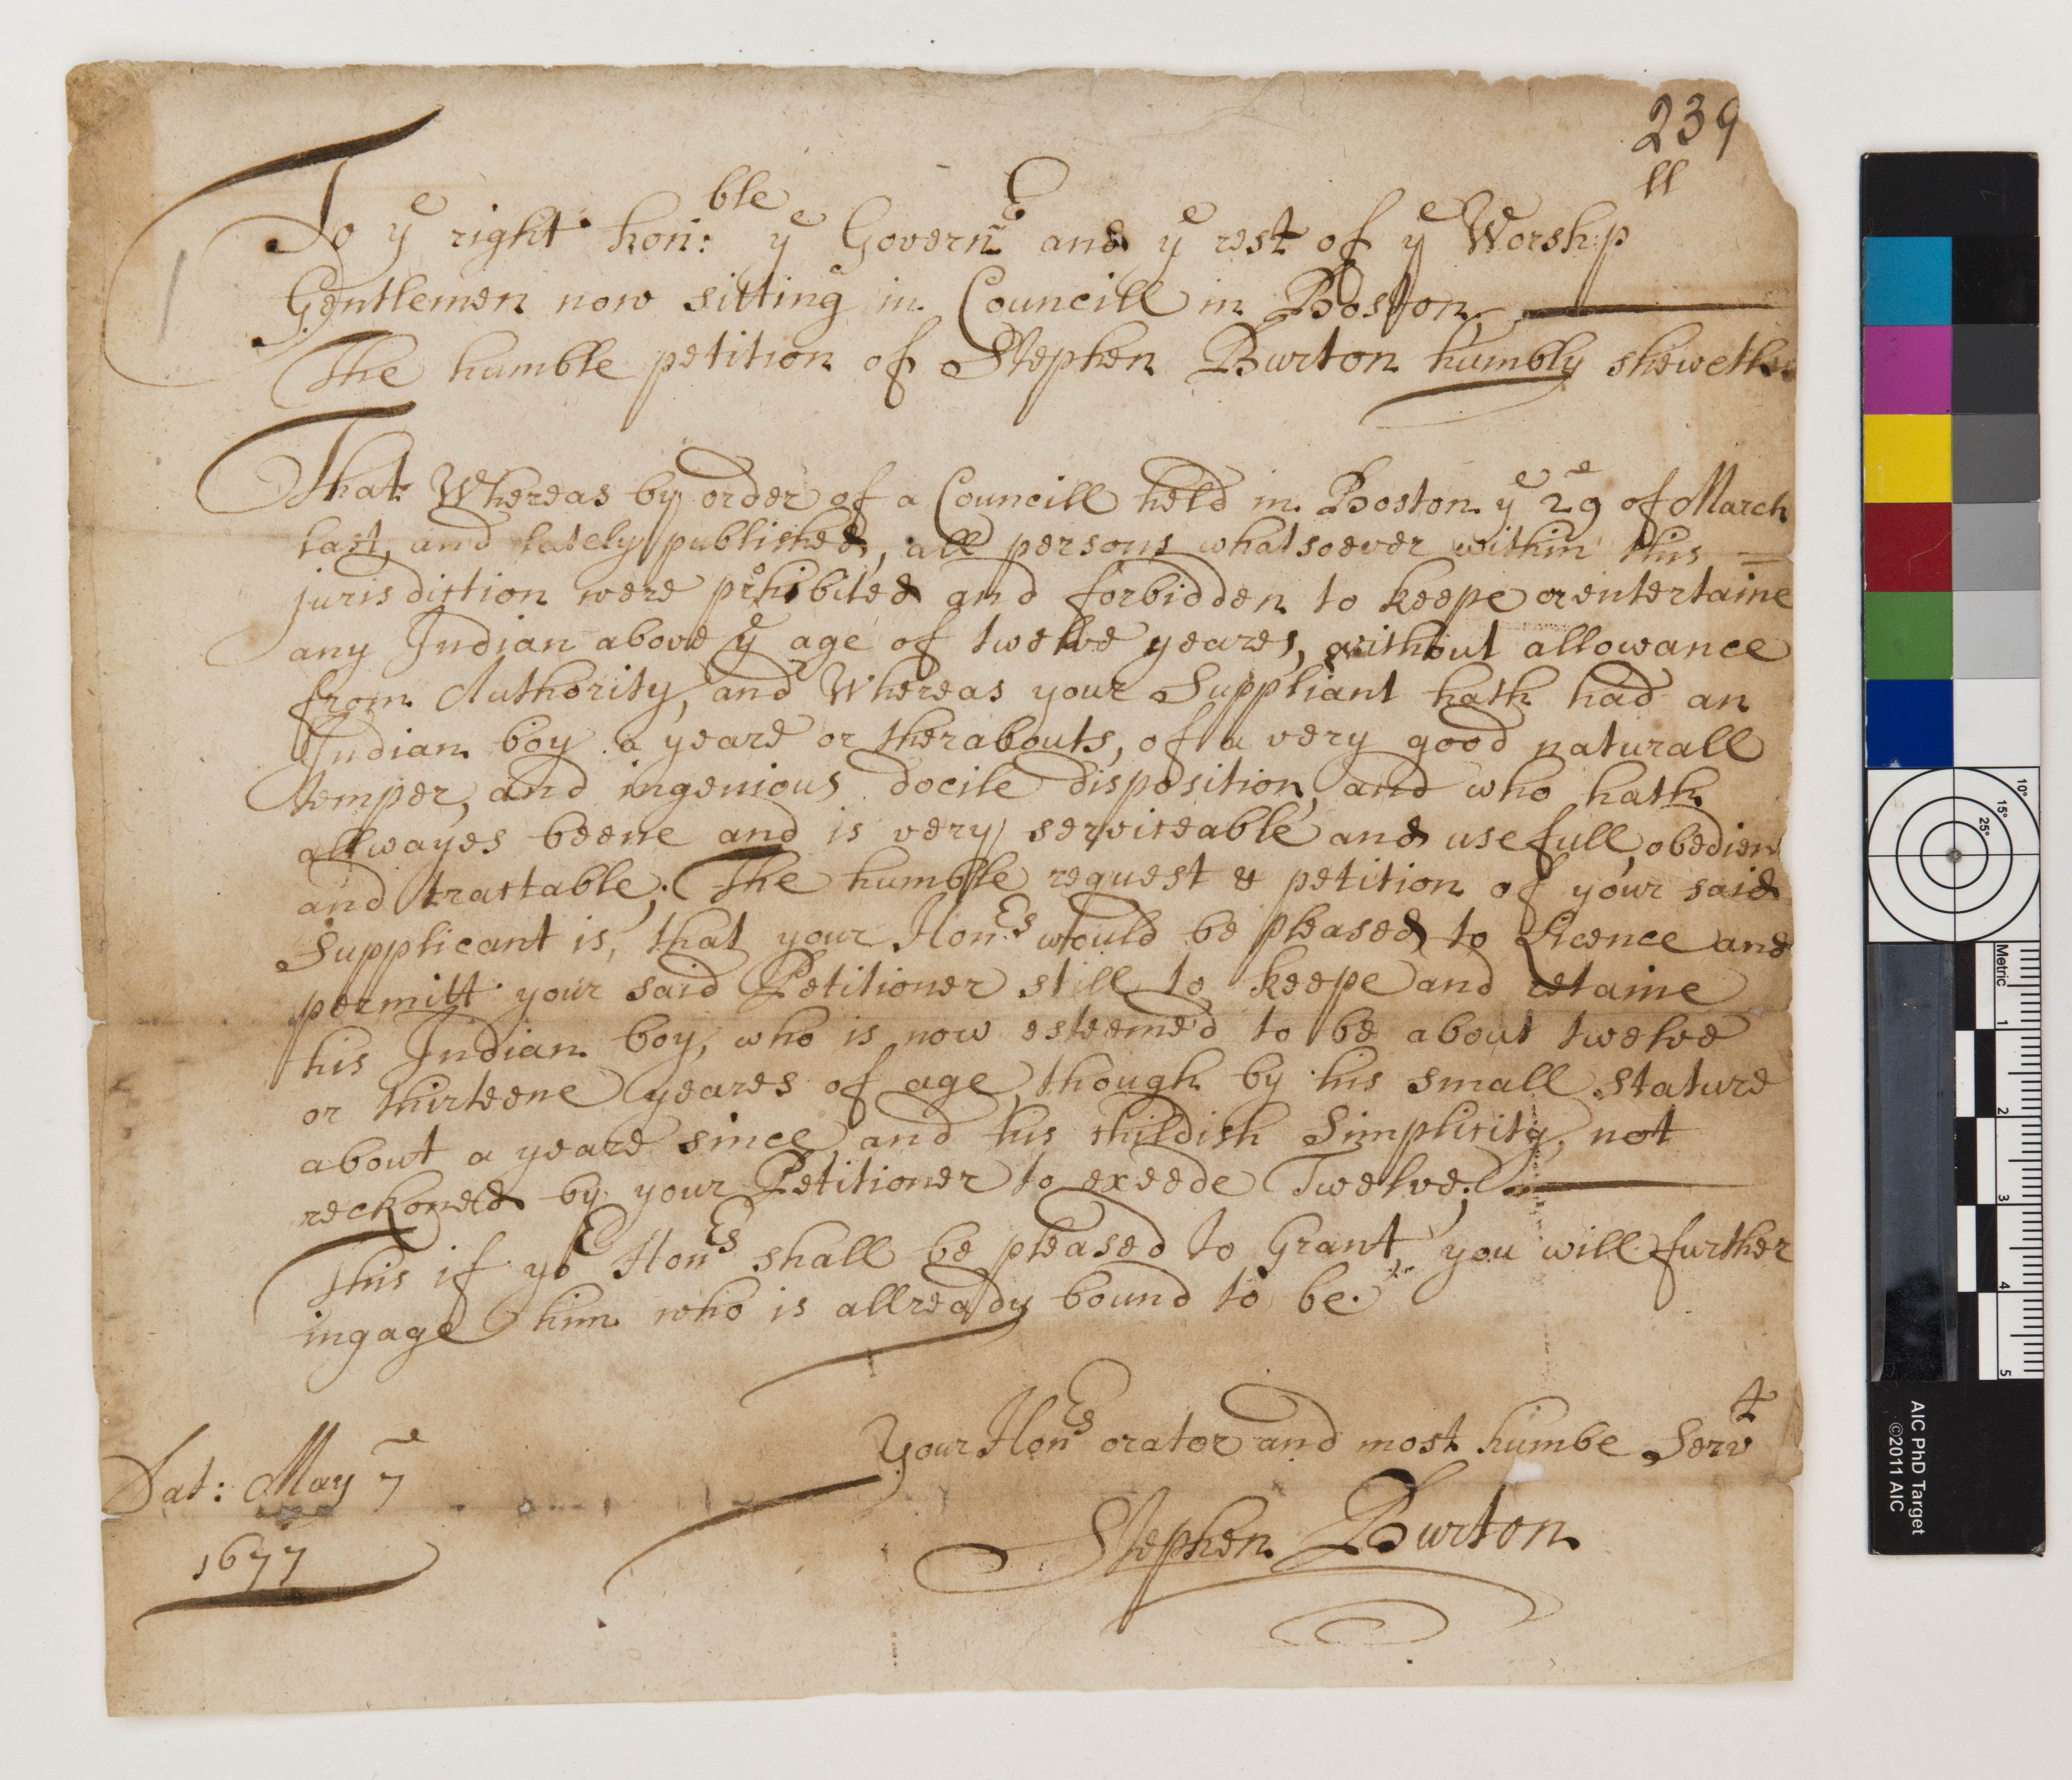 239
To yᵉ right honᵇˡᵉ: yᵉ Governʳ and yᵉ rest of yᵉ Worshipˡˡ
Gentlemen now sitting in Councill in Boston
The humble petition of Stephen Burton humbly sheweth
That Whereas by order of a Councill held in Boston yᵉ 29 of March
last, and lately published, all persons whatsoever within this
jurisdiction were prohibited and forbidden to keepe or entertaine
any Indian above yᵉ age of twelve yeares, without allowance
from Authority, and Whereas your Suppliant hath had an
Indian boy a yeare or therabouts, of a very good naturall
temper, and ingenious docile disposition, and who hath
allwayes beene and is very serviceable and usefull, obedien
and tractable; The humble request & petition of your said
Supplicant is, that your Honʳˢ would be pleased to Licence and
permitt your said Petitioner still to keepe and retaine
his Indian boy, who is now esteemed to be about twelve
or thirteene yeares of age, though by his small stature
about a yeare since, and his childish Simplicity, not
reckoned by your Petitioner to exeede Twelve;
This if yoʳ Honʳˢ shall be pleased to Grant, you will further
ingage him who is allready bound to be.
Your Honʳˢ orator and most humbe Servᵗ
Stephen Burton
Dat: May 7ᵉ
1677
Metric
1
2
3
4
5
10°
15°
25°
AIC PhD Target
©2011 AIC